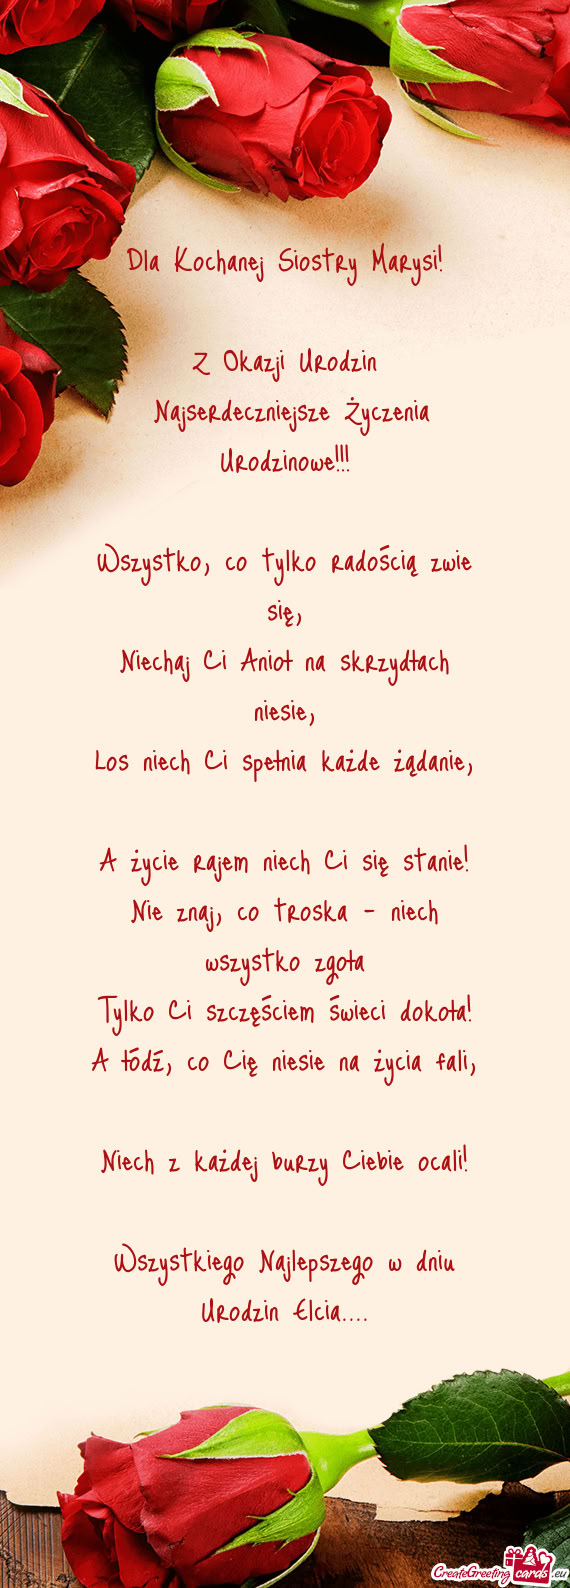 Dla Kochanej Siostry Marysi!
Z Okazji Urodzin
Najserdeczniejsze Życzenia
Urodzinowe!!!
Wszystko, co tylko radością zwie
się,
Niechaj Ci Anioł na skrzydłach
niesie,
Los niech Ci spełnia każde żądanie,
A życie rajem niech Ci się stanie!
Nie znaj, co troska - niech
wszystko zgoła
Tylko Ci szczęściem świeci dokoła!
A łódź, co Cię niesie na życia fali,
Niech z każdej burzy Ciebie ocali!
Wszystkiego Najlepszego w dniu
Urodzin Elcia....
CreateGreetingcards.eu